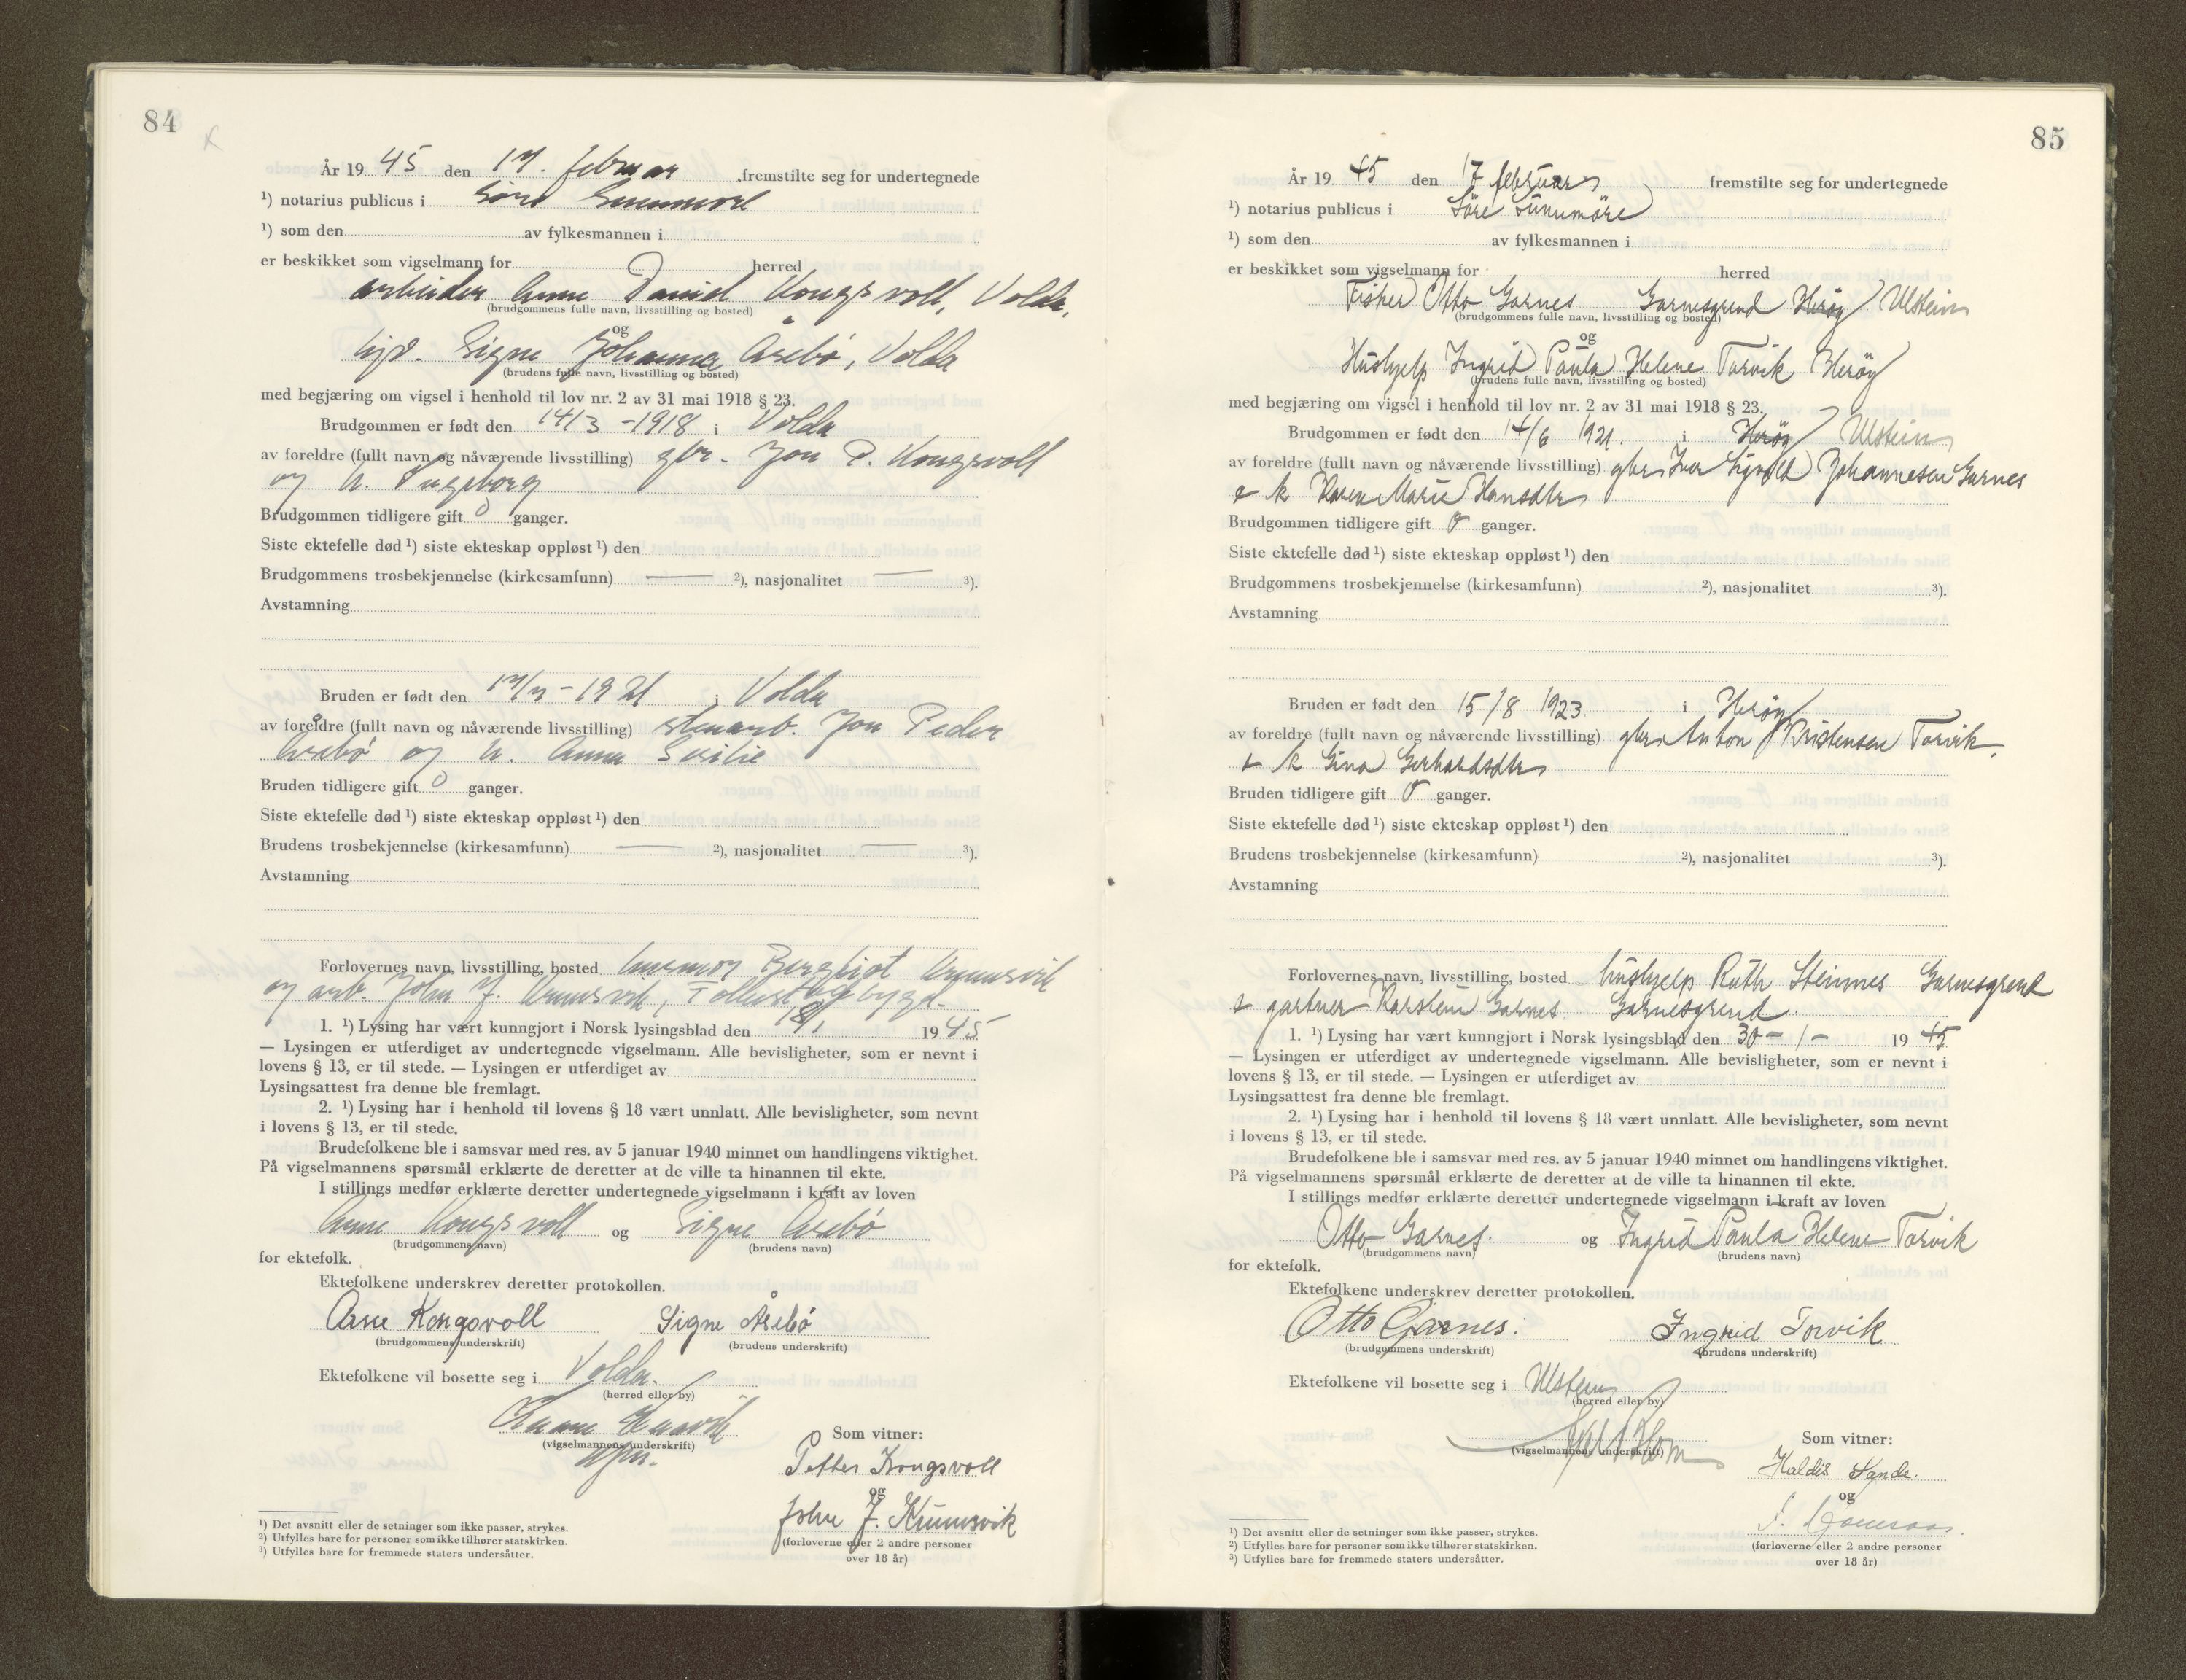 84
År 19 45 den 17. februar fremstilte seg for undertegnede
¹) notarius publicus i Søre Sunnmøre
¹) som den av fylkesmannen i
er beskikket som vigselmann for herred
arbeider Arne Daniel Kongsvoll, Volda,
(brudgommens fulle navn, livsstilling og bosted)
og
hjp. Signe Johanna Åsebø, Volda
(brudens fulle navn, livsstilling og bosted)
med begjæring om vigsel i henhold til lov nr. 2 av 31 mai 1918 § 23.
Brudgommen er født den 14/3 -1918 i Volda
av foreldre (fullt navn og nåværende livsstilling) gbr. Jon P. Kongsvoll
og h. Ingeborg
Brudgommen tidligere gift 0 ganger.
Siste ektefelle død ¹) siste ekteskap oppløst ¹) den
Brudgommens trosbekjennelse (kirkesamfunn) — ²), nasjonalitet — ³).
Avstamning
Bruden er født den 17/7 - 1921 i Volda
av foreldre (fullt navn og nåværende livsstilling) stenarb. Jon Peder
Åsebø og h. Anna Sesilie
Bruden tidligere gift 0 ganger.
Siste ektefelle død ¹) siste ekteskap oppløst ¹) den
Brudens trosbekjennelse (kirkesamfunn) — ²), nasjonalitet — ³).
Avstamning
Forlovernes navn, livsstilling, bosted husmor Bergliot Krumsvik
og arb. John J. Krumsvik,
1. ¹) Lysing har vært kunngjort i Norsk lysingsblad den 18/1 19 45
— Lysingen er utferdiget av undertegnede vigselmann. Alle bevisligheter, som er nevnt i
lovens § 13, er til stede. — Lysingen er utferdiget av
Lysingsattest fra denne ble fremlagt.
2. ¹) Lysing har i henhold til lovens § 18 vært unnlatt. Alle bevisligheter, som nevnt
i lovens § 13, er til stede.
Brudefolkene ble i samsvar med res. av 5 januar 1940 minnet om handlingens viktighet.
På vigselmannens spørsmål erklærte de deretter at de ville ta hinannen til ekte.
I stillings medfør erklærte deretter undertegnede vigselmann i kraft av loven
Arne Kongsvoll og Signe Åsebø
(brudgommens navn) (brudens navn)
for ektefolk.
Ektefolkene underskrev deretter protokollen.
Arne Kongsvoll Signe Åsebø
(brudgommens underskrift) (brudens underskrift)
Ektefolkene vil bosette seg i Volda.
(herred eller by)
(vigselmannens underskrift)
Som vitner:
Petter Kongsvoll
og
John J. Krumsvik
(forloverne eller 2 andre personer
over 18 år)
¹) Det avsnitt eller de setninger som ikke passer, strykes.
²) Utfylles bare for personer som ikke tilhører statskirken.
³) Utfylles bare for fremmede staters undersåtter.
85
År 19 45 den 17 februar fremstilte seg for undertegnede
¹) notarius publicus i Søre Sunnmøre
¹) som den av fylkesmannen i
er beskikket som vigselmann for herred
Fisker Otto Garnes Garnesgrend Herøy Ulstein
(brudgommens fulle navn, livsstilling og bosted)
og
Hushjelp Ingrid Paula Helene Torvik Herøy
(brudens fulle navn, livsstilling og bosted)
med begjæring om vigsel i henhold til lov nr. 2 av 31 mai 1918 § 23.
Brudgommen er født den 14/6 1921. i Herøy Ulstein
av foreldre (fullt navn og nåværende livsstilling) gbr Iver Sigvald Johannesen Garnes
& h Karen Marie Hansdtr
Brudgommen tidligere gift 0 ganger.
Siste ektefelle død ¹) siste ekteskap oppløst ¹) den
Brudgommens trosbekjennelse (kirkesamfunn) ²), nasjonalitet ³).
Avstamning
Bruden er født den 15/8 1923 i Herøy
av foreldre (fullt navn og nåværende livsstilling) gbr Anton Kristensen Torvik
& h Gina Gerhardsdtr
Bruden tidligere gift 0 ganger.
Siste ektefelle død ¹) siste ekteskap oppløst ¹) den
Brudens trosbekjennelse (kirkesamfunn) ²), nasjonalitet ³).
Avstamning
Forlovernes navn, livsstilling, bosted hushjelp Ruth Steinnes Garnesgrend
& gartner Karstein Garnes Garnesgrend.
1. ¹) Lysing har vært kunngjort i Norsk lysingsblad den 30 - 1 - 19 45
— Lysingen er utferdiget av undertegnede vigselmann. Alle bevisligheter, som er nevnt i
lovens § 13, er til stede. — Lysingen er utferdiget av
Lysingsattest fra denne ble fremlagt.
2. ¹) Lysing har i henhold til lovens § 18 vært unnlatt. Alle bevisligheter, som nevnt
i lovens § 13, er til stede.
Brudefolkene ble i samsvar med res. av 5 januar 1940 minnet om handlingens viktighet.
På vigselmannens spørsmål erklærte de deretter at de ville ta hinannen til ekte.
I stillings medfør erklærte deretter undertegnede vigselmann i kraft av loven
Otto Garnes. og Ingrid Paula Helene Torvik
(brudgommens navn) (brudens navn)
for ektefolk.
Ektefolkene underskrev deretter protokollen.
Otto Garnes. Ingrid Torvik
(brudgommens underskrift) (brudens underskrift)
Ektefolkene vil bosette seg i Ulstein
(herred eller by)
(vigselmannens underskrift)
Som vitner:
Haldis Sande.
og
(forloverne eller 2 andre personer
over 18 år)
¹) Det avsnitt eller de setninger som ikke passer, strykes.
²) Utfylles bare for personer som ikke tilhører statskirken.
³) Utfylles bare for fremmede staters undersåtter.